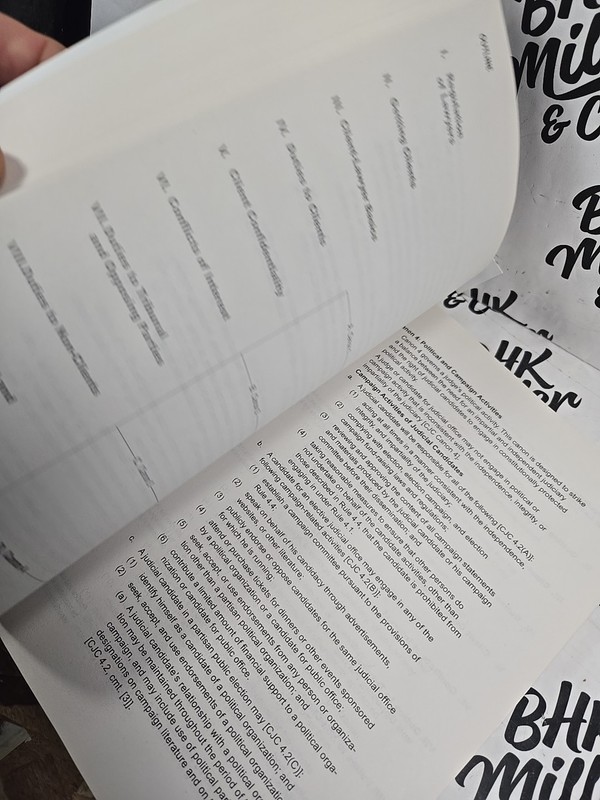 OUTLINE
I. Regulation
of Lawyers
II. Getting Clients
III. Client/Lawyer Basics
IV. Duties to Clients
V. Client Confidentiality
VI. Conflicts of Interest
VII. Duties to Tribunal
and Opposing Parties
VIII. Duties to Non-Clients
4. Political and Campaign Activities
Canon 4 governs a judge's political activity. This canon is designed to strike
a balance between the need for an impartial and independent judiciary
and the right of judicial candidates to engage in constitutionally protected
political activity.
A judge or candidate for judicial office may not engage in political or
campaign activity that is inconsistent with the independence, integrity, or
impartiality of the judiciary. [CJC Canon 4]
a. Campaign Activities of Judicial Candidates
(1) A judicial candidate will be responsible for all of the following [CJC 4.2(A)]:
acting at all times in a manner consistent with the independence,
integrity, and impartiality of the judiciary;
(2) complying with election, election campaign, and election
campaign fund-raising laws and regulations;
(3) reviewing and approving the content of all campaign statements
and materials produced by the judicial candidate or his campaign
committee before their dissemination; and
(4) taking reasonable measures to ensure that other persons do
not undertake on behalf of the candidate activities other than
those described in Rule 4.4, that the candidate is prohibited from
engaging in under Rule 4.1.
b. A candidate for an elective judicial office may engage in any of the
following campaign-related activities [CJC 4.2(B)]:
(1) establish a campaign committee pursuant to the provisions of
Rule 4.4;
(2) speak on behalf of his candidacy through advertisements,
websites, or other literature;
(3) publicly endorse or oppose candidates for the same judicial office
for which he is running;
(4) attend or purchase tickets for dinners or other events sponsored
by a political organization or a candidate for public office;
(5) seek, accept, or use endorsements from any person or organiza-
tion other than a partisan political organization; and
(6) contribute a limited amount of financial support to a political orga-
nization or candidate for public office.
c. A judicial candidate in a partisan public election may [CJC 4.2(C)]:
(1) identify himself as a candidate of a political organization; and
(2) seek, accept, and use endorsements of a political organization.
(a) A judicial candidate's relationship with a political
tion may be maintained throughout the period of
campaign, and may include use of political par
designations on campaign literature and on
[CJC 4.2, cmt. [3]].
BHK
Miller
& C
BHK
Miller